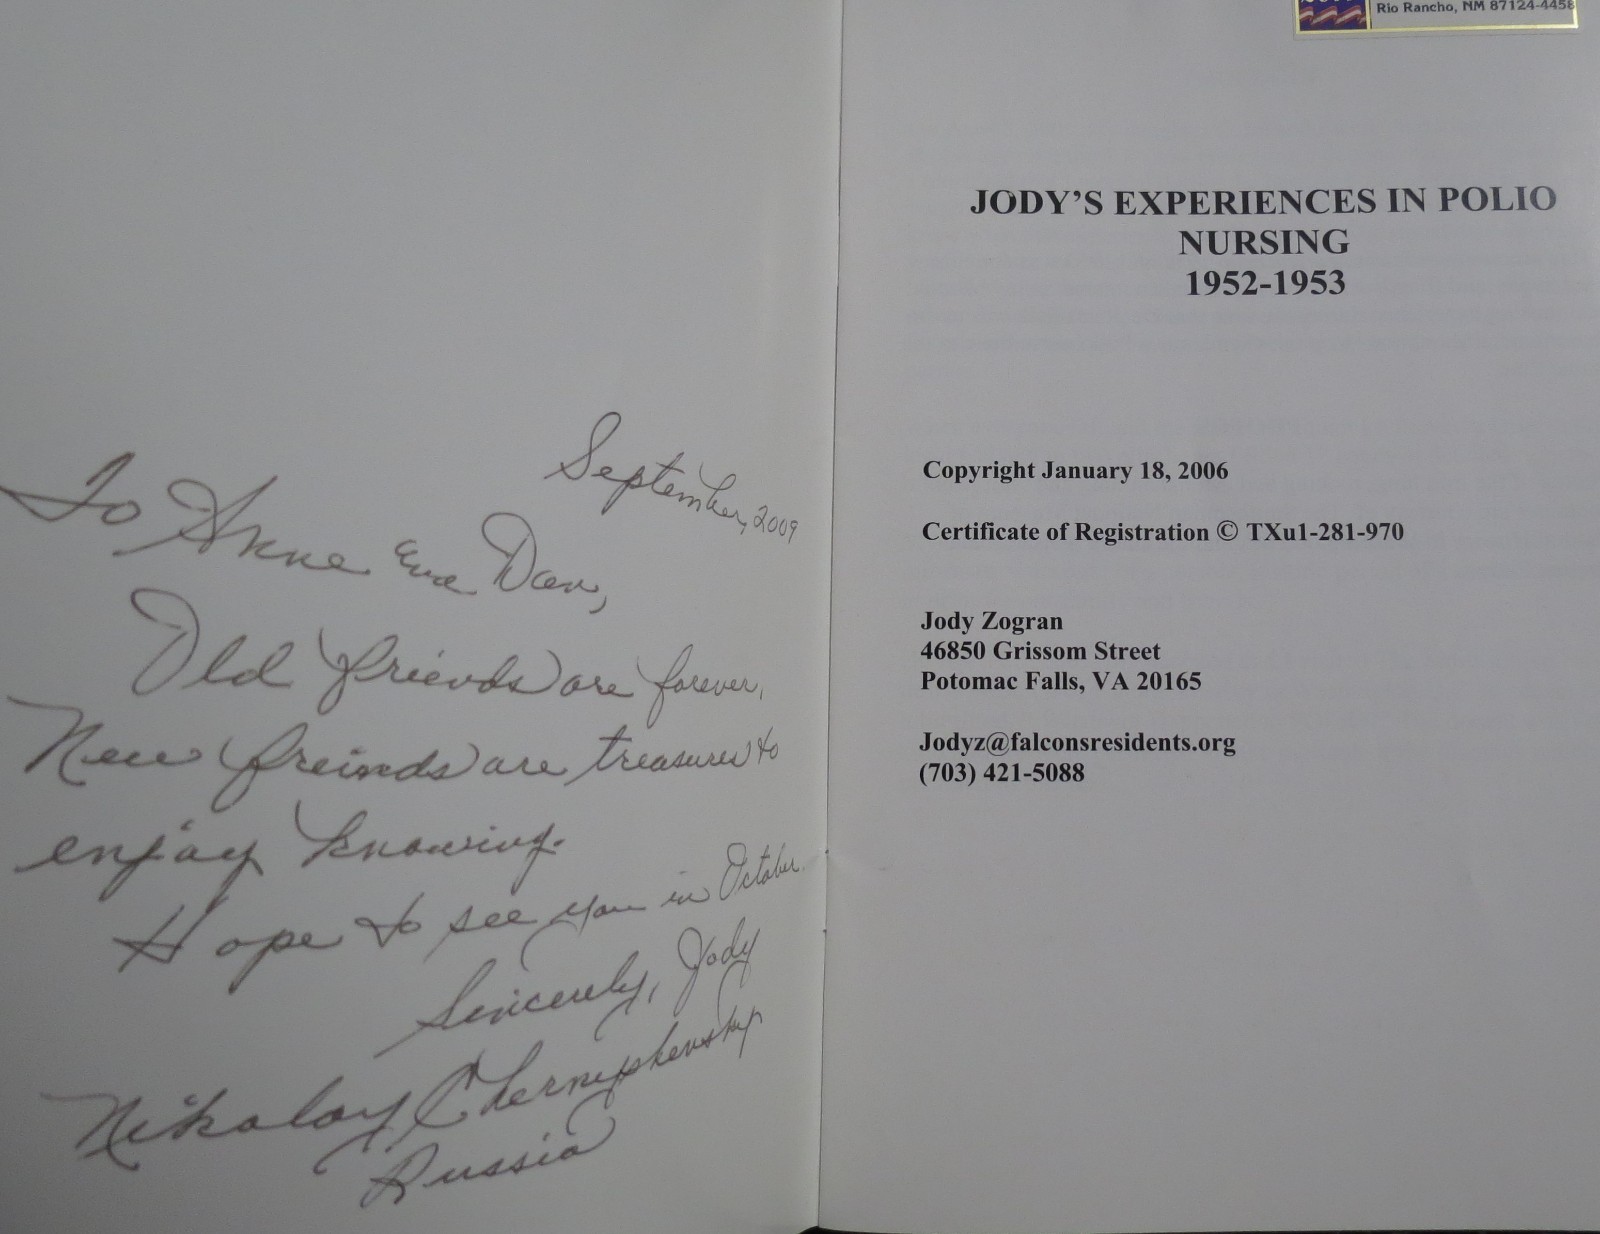 September, 2009
To Anne and Dan,
Old friends are forever,
New freinds are treasures to
enjoy knowing.
Hope to see you in October.
Sincerely, Jody
Nikolay Chernyshevsky
Russia
Rio Rancho, NM 87124-4458
JODY'S EXPERIENCES IN POLIO
NURSING
1952-1953
Copyright January 18, 2006
Certificate of Registration © TXu1-281-970
Jody Zogran
46850 Grissom Street
Potomac Falls, VA 20165
Jodyz@falconsresidents.org
(703) 421-5088